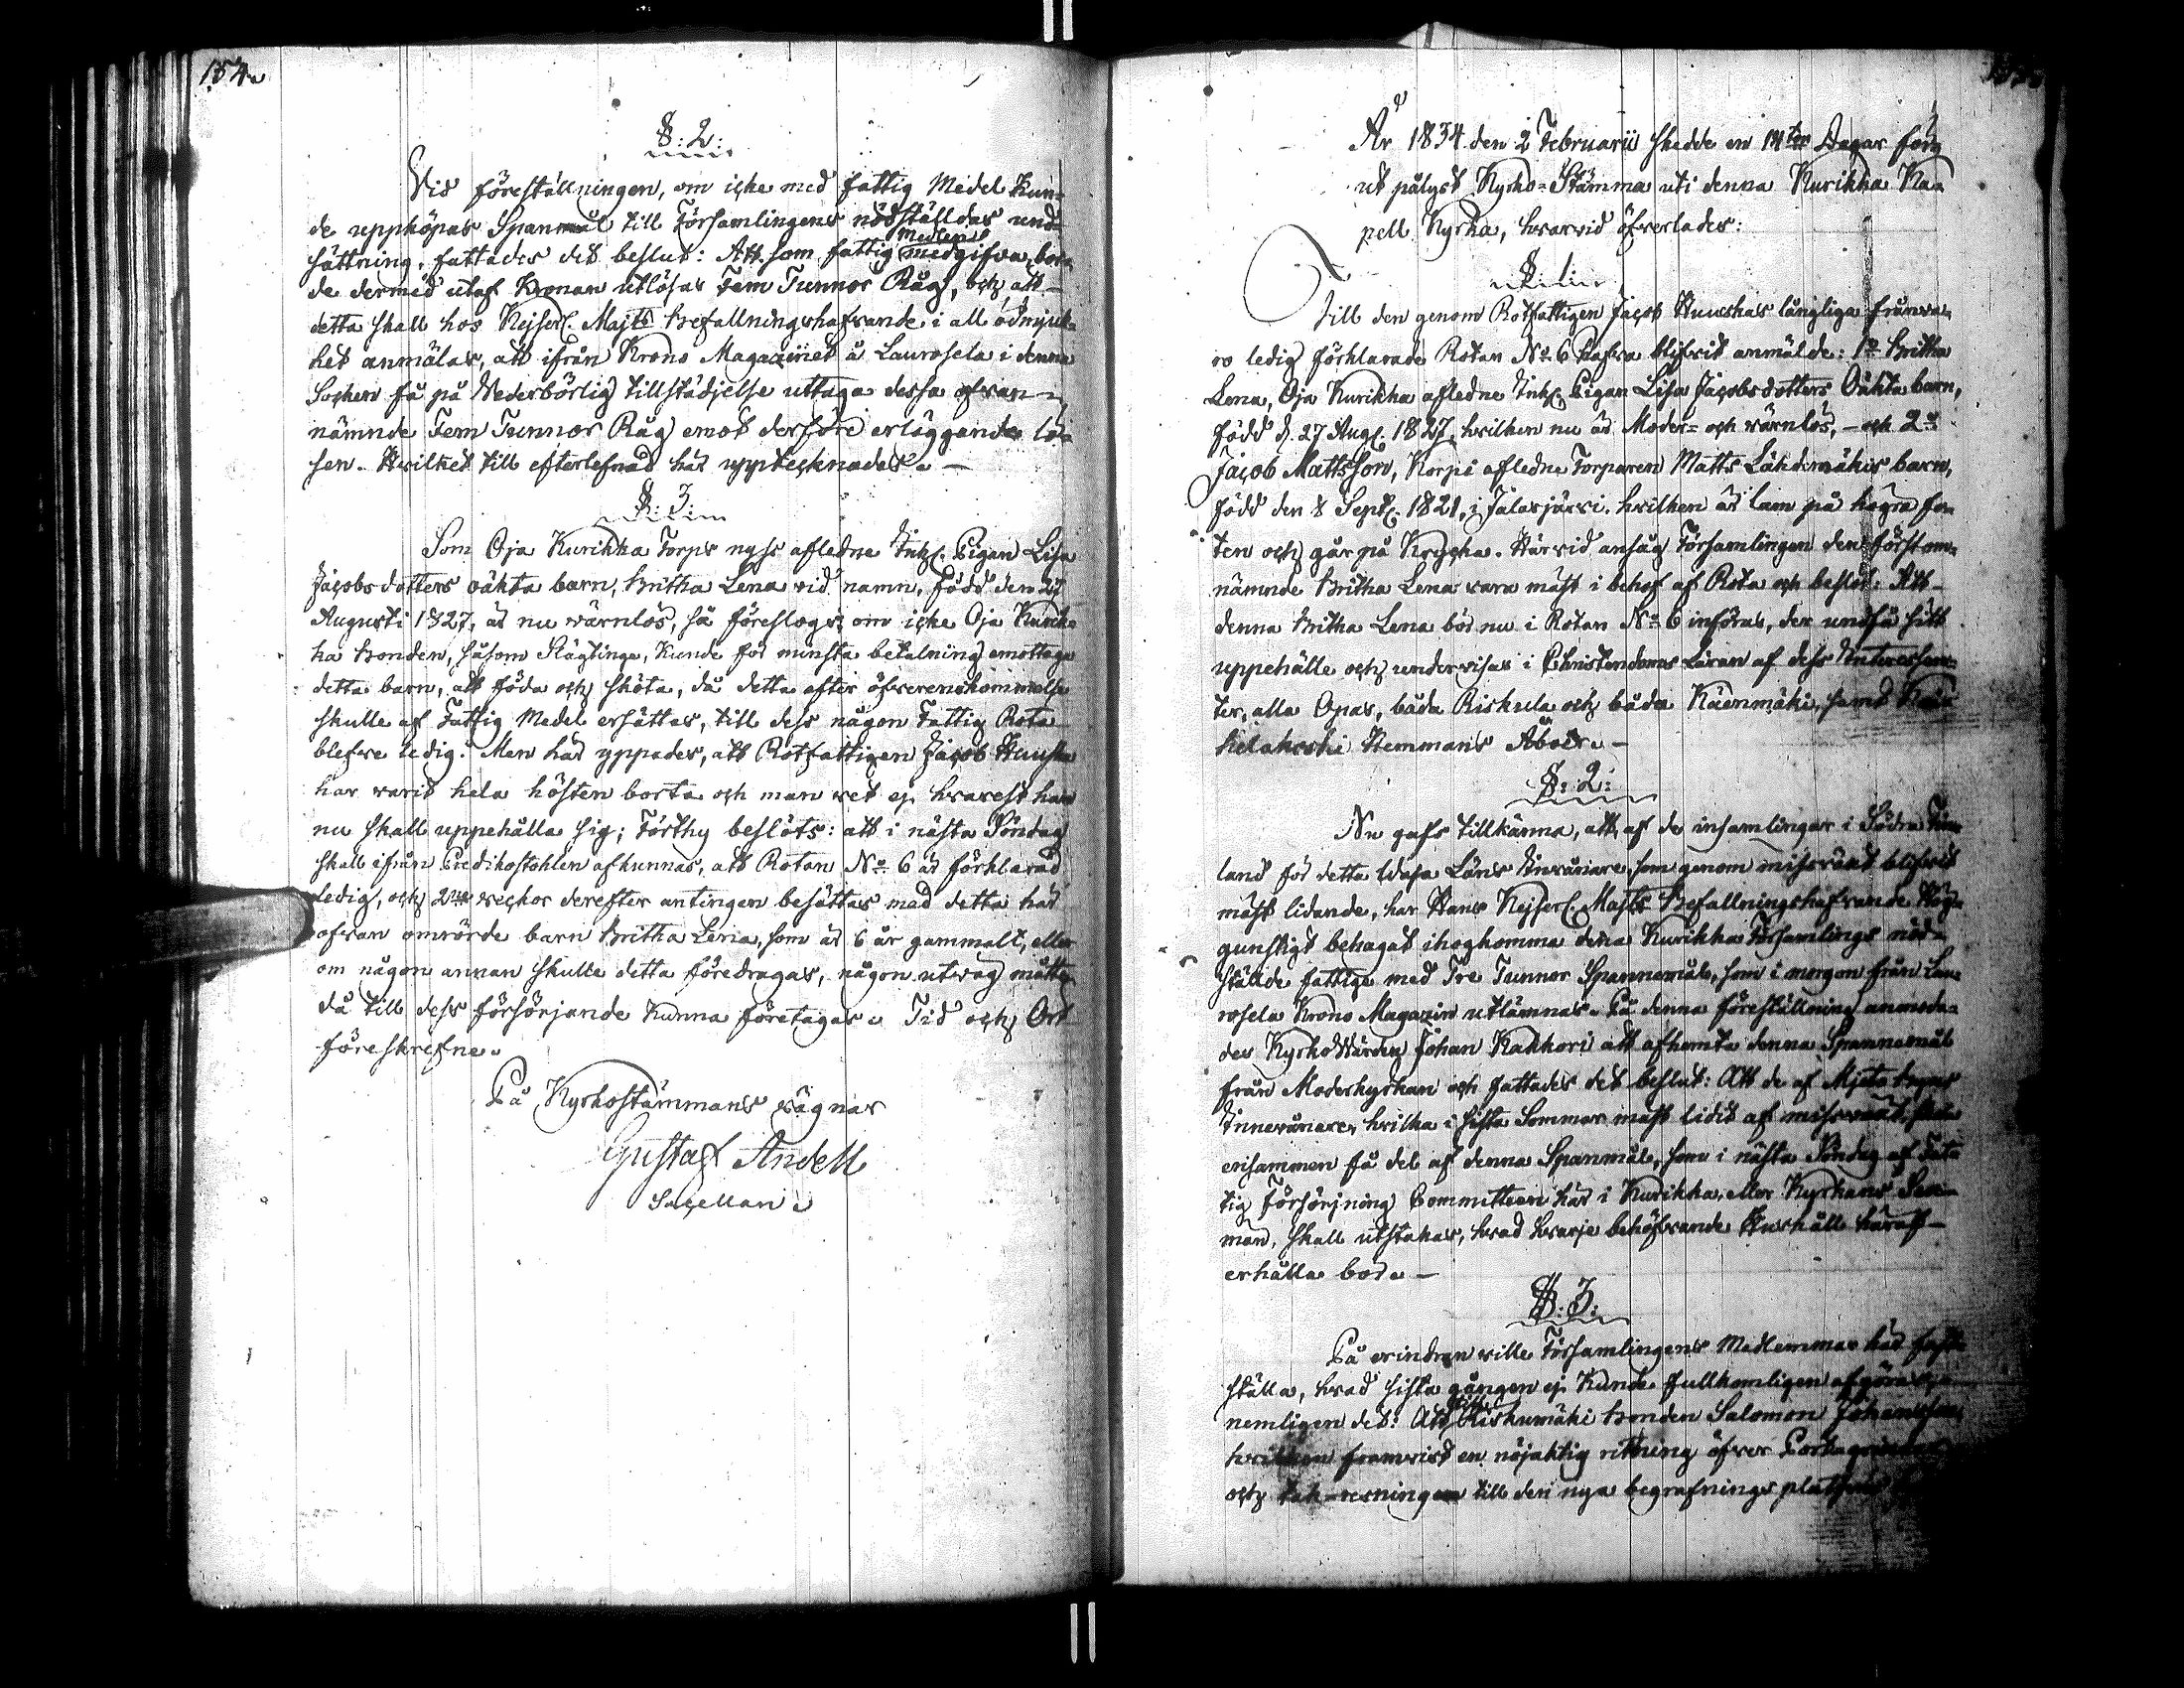 154.
§: 2:
Vid föreställningen, om icke med fattig Medel Kun-
de uppköpas Spanmål till Församlingens nödställdas und-
sättning, fattades det beslut: Att som fattig Medlen medgifva, bor-
de dermed utaf Kronan utlösas Fem Tunnor Råg, och att
detta skall hos Kejserl. Majts Befallningshafvande i all ödmjuk-
het anmälas, att ifrån Krono Magaziinet å Laurosela i denna
Socken få på Vederbörlig tillstådjelse uttaga dessa ofvan-
nämnde Fem Tunnor Råg emot derföre erläggande lö-
sen. Hvilket till efterlefnad här upptecknades. —
§: 3:
Som Oja Kurikka Torps nyss afledne Inh. Pigan Lisa
Jacobsdotters oäkta barn, Britha Lena vid namn, född den 27
Augusti 1827, är nu värnlös, så föreslogs, om icke Oja Kurik-
ka Bonden, såsom Slägtinge, kunde för minsta betalning emottaga
detta barn, att föda och sköta, då detta efter öfverenskommelse
skulle af Fattig Medel ersättas, till dess någon Fattig Rota
blefve ledig. Men här yppades, att Rotfattigen Jacob Hunska
har varit hela hösten borta och man vet ej hvarest han
nu skall uppehålla sig; Förthy beslöts: att i nästa Söndag
skall ifrån Predikostohlen afkunnas, att Rotan No 6 är förklarad
ledig, och 2ne veckor derefter antingen besättas med detta här
ofvan omrörde barn Britha Lena, som är 6 år gammalt, eller
om någon annan skulle detta föredragas, någon utväg måtte
då till dess försörjande kunna företagas. Tid och Ort
föreskrefne.
På Kyrkostämmans vägnar
Gustaf Andell
Sacellan.
År 1834 den 2 Februarii skedde en 14ton Dagar förr
ut pålyst Kyrko-Stämma uti denna Kurikka Ka-
pell Kyrka, hvarvid öfverlades:
§: 1:
Till den genom Rotfattigen Jacob Hunskas långliga frånva-
ro ledig förklarade Rotan No 6 hafva blifvit anmälde: 1o Britha
Lena, Oja Kurikka afledne Inh. Pigan Lisa Jacobsdotters Oäkta barn,
född d. 27 Aug. 1827, hvilken nu är Moder- och värnlös, — och 2o
Jacob Mattsson, Korpi afledne Torparen Matts Lähdemäkis barn,
född den 8 Sept. 1821, i Jalasjärvi, hvilken är lam på högra fo-
ten och går på Krycka. Härvid ansåg Församlingen den förstom-
nämnde Britha Lena vara mäst i behof af Rota och beslöt: Att
denna Britha Lena bör nu i Rotan No 6 införas, der undfå sitt
uppehälle och undervisas i Christendoms Läran af dess Interessen-
ter, alla Opas, båda Riskula och båda Käenmäki, samt
kelakoski Hemmans Åboer. —
§: 2:
Nu gafs tillkänna, att af de insamlingar i Södra Fin-
land för detta Wasa Läns Invånare, som genom missväxt blifvit
mäst lidande, har Hans Kejserl. Majts Befallningshafvande Hög-
gunstigt behagat ihogkomma dena Kurikka Församlings nöd-
ställde fattiga med Tre Tunnor Spannemål, som i morgon från Lau-
rosela Krono Magazin utlämnas. På denna föreställning anmoda-
des Kyrko Wärden Johan Kakkori att afhemta denna Spannemål
från Moderkyrkan och fattades det beslut: Att de af Mjeto byns
Innevånare, hvilka i sista Sommar mäst lidit af missväxt, skola
ensammen få del af denna Spanmål, som i nästa Söndag af Fat-
tig Försörjning Committeen här i Kurikka, eller Kyrkans Sex-
män, skall utstakas, hvad hvarje behöfvande Hushåll häraf
erhålla bör. —
§: 3:
På erindran ville Församlingens Medlemmar här fast-
ställa, hvad sista gången ej kunde fullkomligen afgöras,
nemligen det: Att Riskumäki Bonden Salomon Johansson,
hvilken framvist en nöjaktig ritning öfver
och tak-resningen till den nya begrafnings platsen